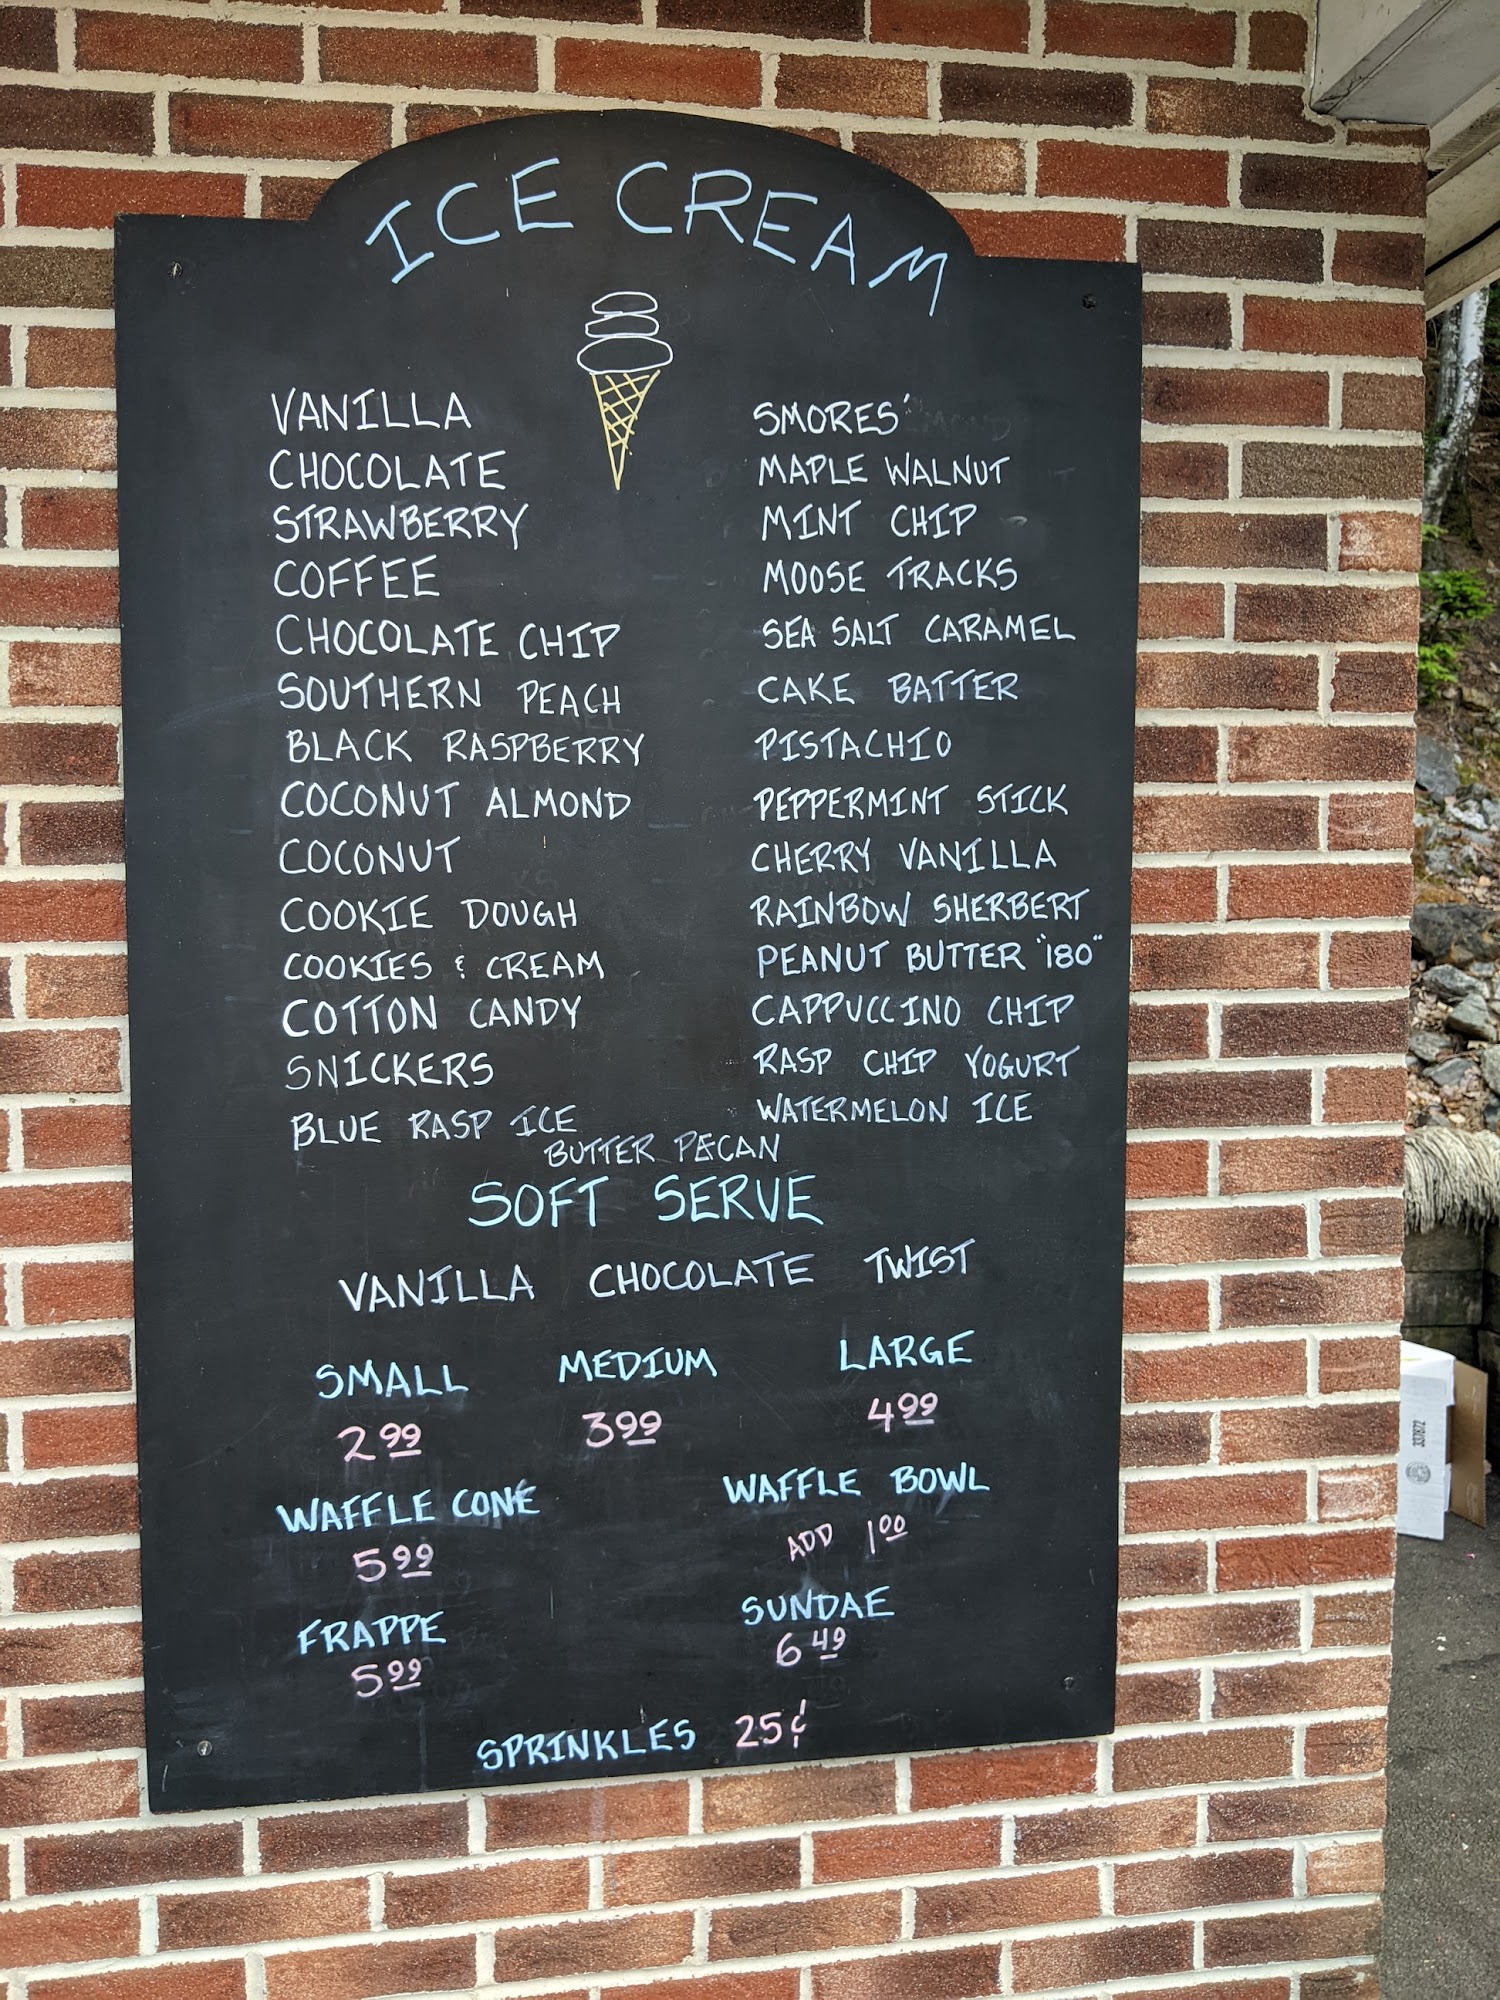 ICE CREAM
VANILLA
CHOCOLATE
STRAWBERRY
COFFEE
CHOCOLATE CHIP
SOUTHERN PEACH
BLACK RASPBERRY
COCONUT ALMOND
COCONUT
COOKIE DOUGH
COOKIES & CREAM
COTTON CANDY
SNICKERS
BLUE RASP ICE
SMORES'
MAPLE WALNUT
MINT CHIP
MOOSE TRACKS
SEA SALT CARAMEL
CAKE BATTER
PISTACHIO
PEPPERMINT STICK
CHERRY VANILLA
RAINBOW SHERBERT
PEANUT BUTTER "180"
CAPPUCCINO CHIP
RASP CHIP YOGURT
WATERMELON ICE
BUTTER PECAN
SOFT SERVE
VANILLA CHOCOLATE TWIST
SMALL MEDIUM LARGE
2.99 3.99 4.99
WAFFLE CONE WAFFLE BOWL
5.99 ADD 1.00
FRAPPE SUNDAE
5.99 6.49
SPRINKLES 25¢
337872